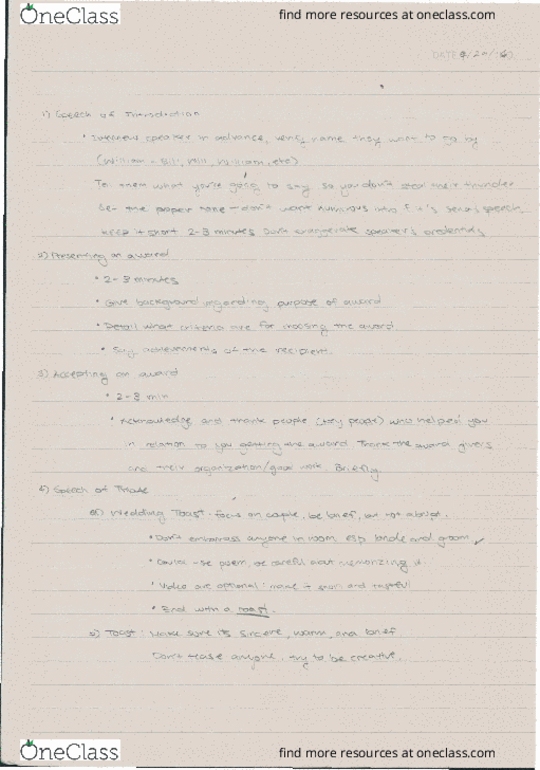 OneClass
find more resources at oneclass.com
DATE
1) Speech of Introduction
• Interview speaker in advance, verify name they want to go by
(William - Bill, Will, William, etc)
To them what you're going to say so you don't steal their thunder
Set the proper tone - don't want humorous intro if it's serious speech
Keep it short 2-3 minutes Don't exaggerate speaker's credentials
2) Presenting an award
• 2-3 minutes
• Give background regarding purpose of award
• Detail what criteria are for choosing the award
• Say achievements of the recipient.
3) Accepting an award
• 2-3 min
• Acknowledge and thank people (key people) who helped you
in relation to you getting the award. Thank the award givers
and their organization/good work. Briefly.
4) Speech of Tribute
a) Wedding Toast - focus on couple, be brief, but not abrupt.
• Don't embarrass anyone in room, esp bride and groom
• Could use poem, be careful about memorizing it.
• Video are optional: make it short and tasteful
• End with a toast.
Toast: Make sure its sincere, warm, and brief
Don't tease anyone, try to be creative.
OneClass
find more resources at oneclass.com